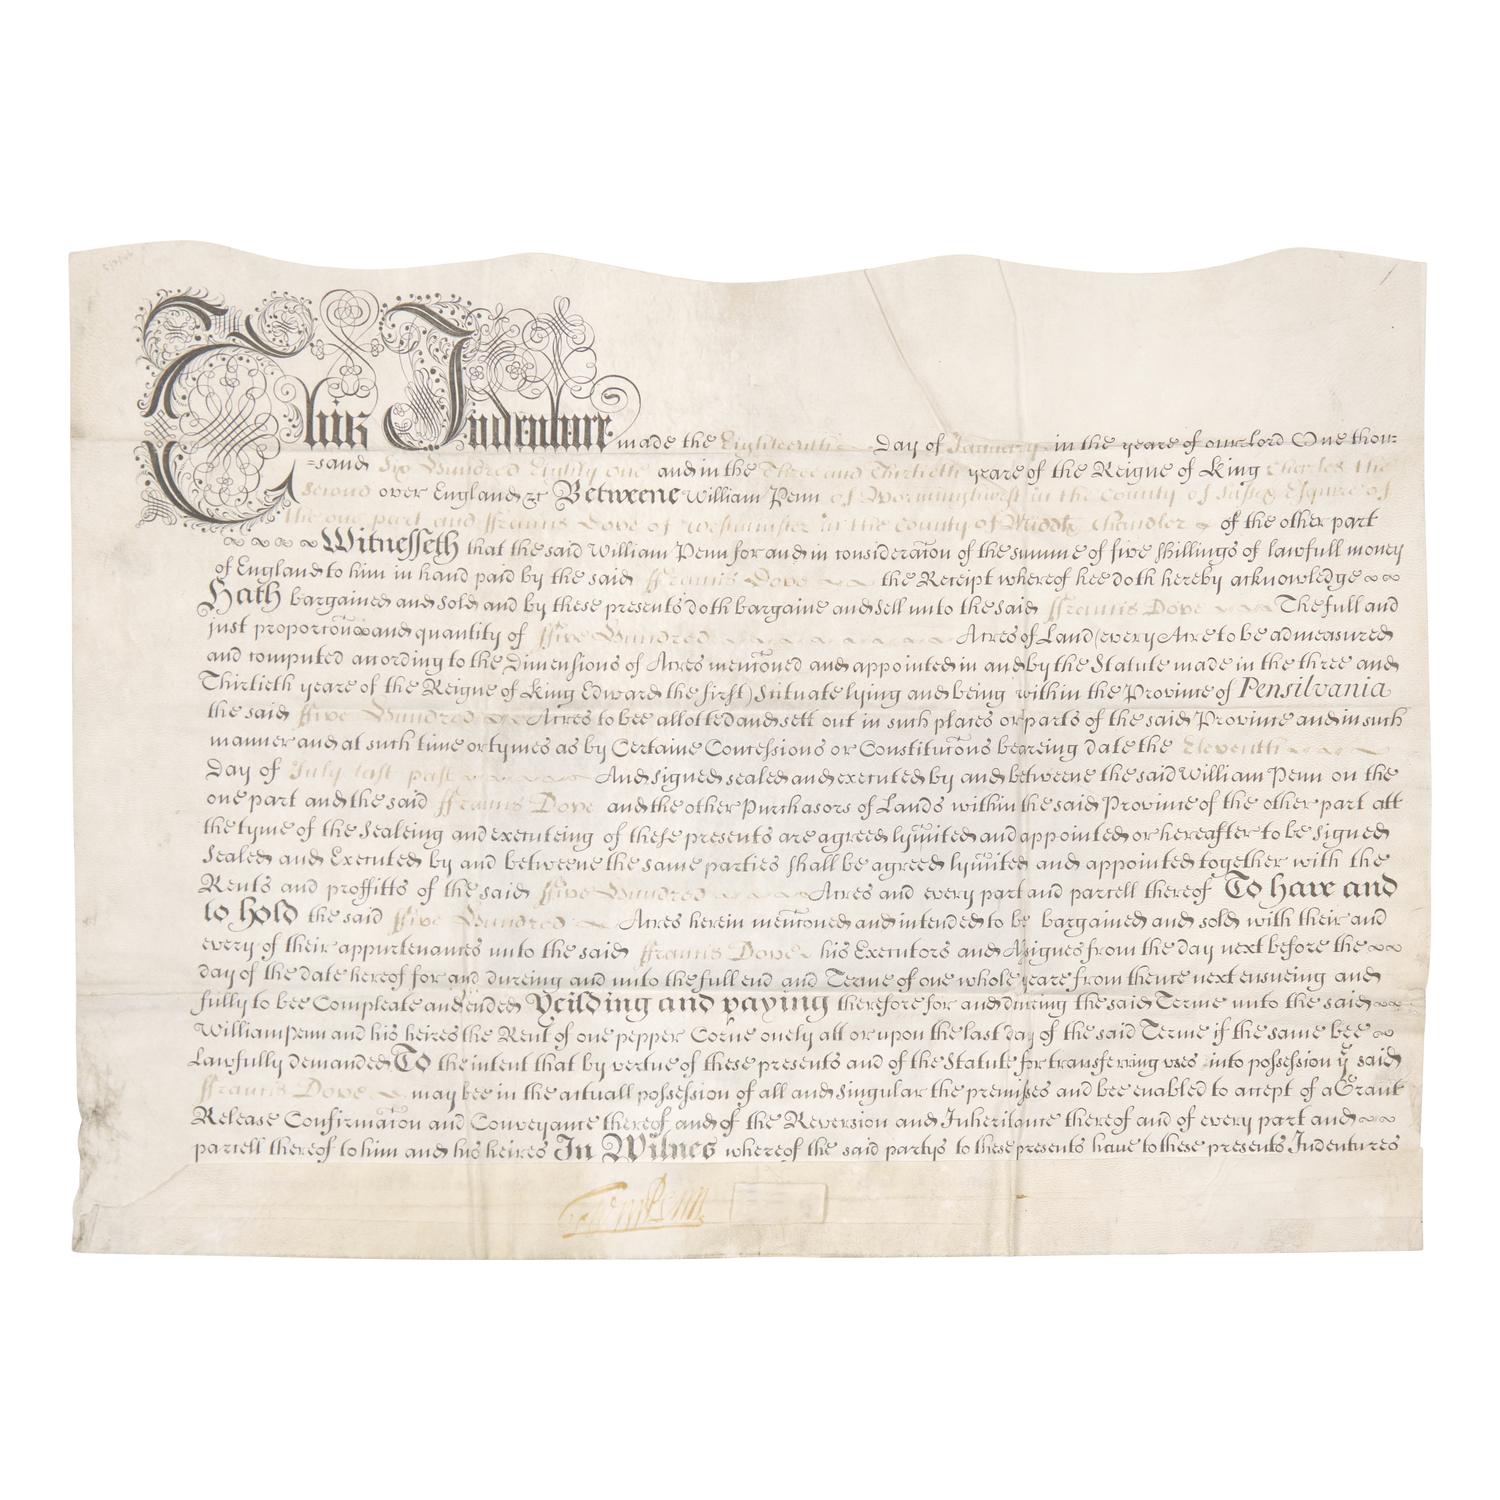 This Indenture made the Eighteenth Day of January in the yeare of our Lord One thou=
=sand Six Hundred Eighty one and in the Three and Thirtieth yeare of the Reigne of King Charles the
Second over England &c Betweene William Penn of Worminghurst in the County of Sussex Esquire of
the one part and ffrancis Dove of Westminster in the County of Middx Chandler of the other part
Witnesseth that the said William Penn for and in consideration of the summe of five Shillings of lawfull money
of England to him in hand paid by the said ffrancis Dove the Receipt whereof hee doth hereby acknowledge
Hath bargained and sold and by these presents doth bargaine and sell unto the said ffrancis Dove The full and
just proportion and quantity of ffive Hundred Acres of Land (every Acre to be admeasured
and computed according to the Dimensions of Acres mentioned and appointed in and by the Statute made in the three and
Thirtieth yeare of the Reigne of King Edward the first) Scituate lying and being within the Province of Pensilvania
the said ffive Hundred Acres to bee allotted and sett out in such places or parts of the said Province and in such
manner and at such time or tymes as by Certaine Concessions or Constitutions beareing date the Eleventh
Day of July last past And signed sealed and executed by and betweene the said William Penn on the
one part and the said ffrancis Dove and the other Purchasors of Lands within the said Province of the other part att
the tyme of the Sealeing and executeing of these presents are agreed lymited and appointed or hereafter to be Signed
Sealed and Executed by and betweene the same parties shall be agreed lymited and appointed together with the
Rents and proffitts of the said ffive Hundred Acres and every part and parcell thereof To have and
to hold the said ffive Hundred Acres herein mentioned and intended to be bargained and sold with their and
every of their appurtenances unto the said ffrancis Dove his Executors and Assignes from the day next before the
day of the date hereof for and dureing and unto the full end and Terme of one whole yeare from thence next ensueing and
fully to bee Compleate and ended Yeilding and paying therefore for and during the said Terme unto the said
William Penn and his heires the Rent of one pepper Corne onely att or upon the last day of the said Terme if the same bee
Lawfully demanded To the intent that by vertue of these presents and of the Statute for transferring uses into possession ye said
ffrancis Dove may bee in the actuall possession of all and singular the premisses and bee enabled to accept of a Grant
Release Confirmation and Conveyance thereof and of the Reversion and Inheritance thereof and of every part and
parcell thereof to him and his heires In Witnes whereof the said partys to these presents have to these presents Indentures
Wm Penn